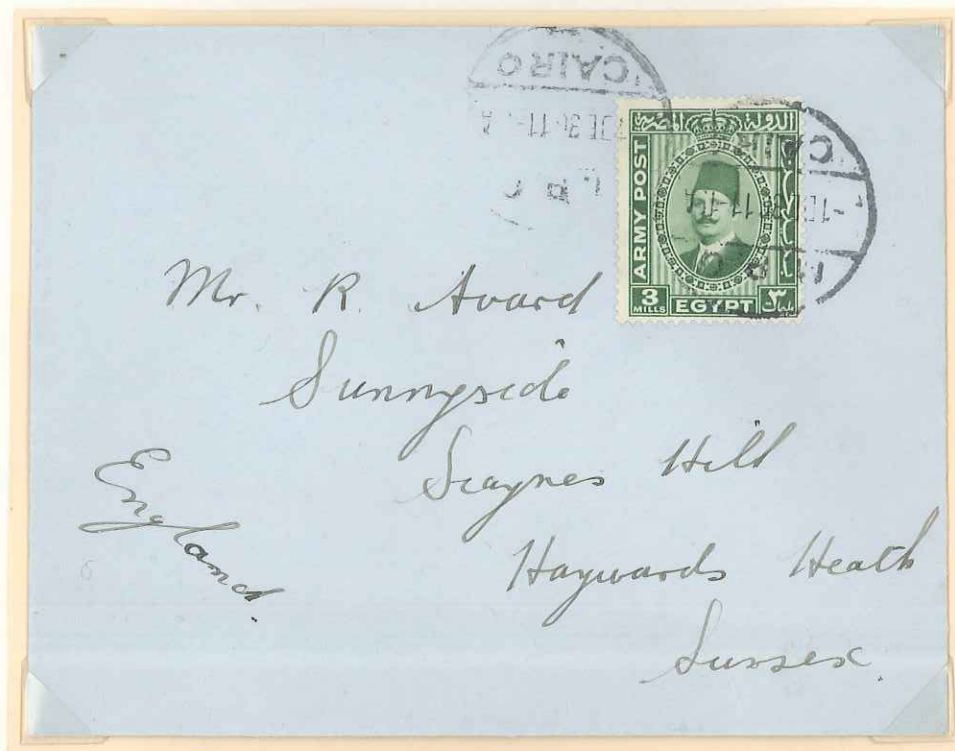 CAIRO
الدولة المصرية
ARMY POST
3
MILLS
EGYPT
Mr. R. Avard
Sunnyside
Scaynes Hill
Haywards Heath
Sussex.
England.